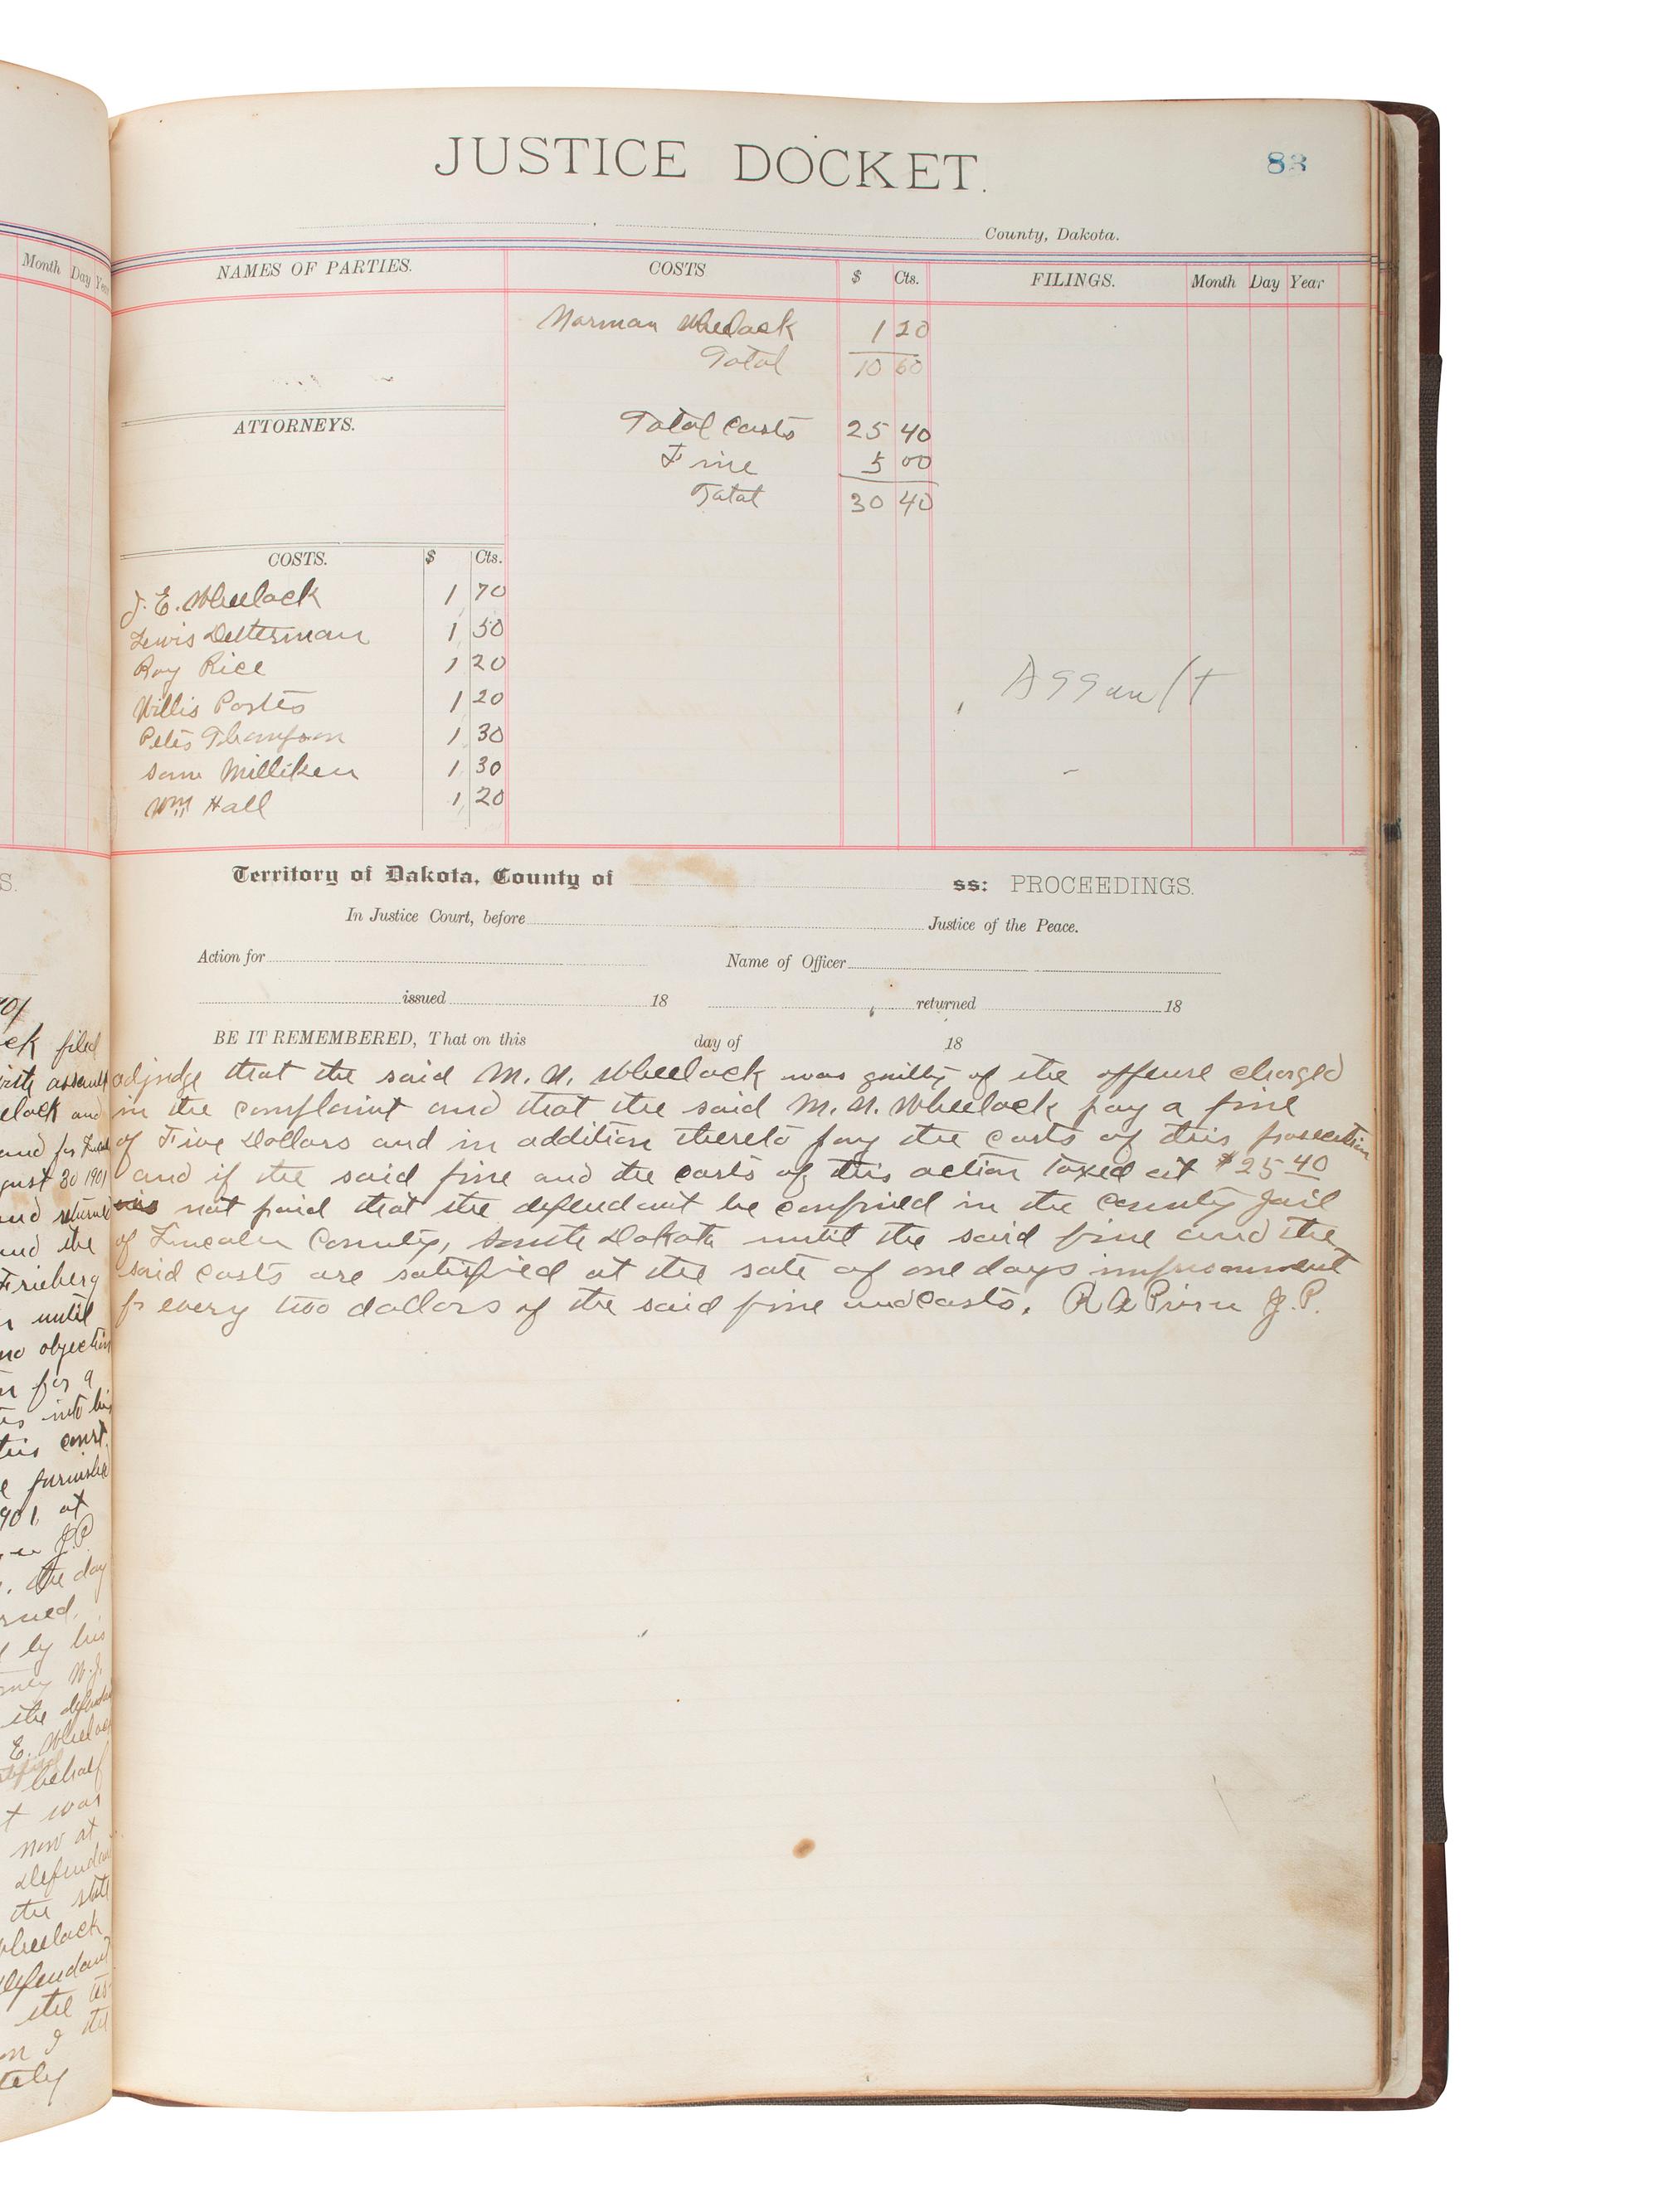 JUSTICE DOCKET.
83
County, Dakota.
Month Day Year
NAMES OF PARTIES.
COSTS $ Cts.
FILINGS. Month Day Year
Norman Wheelock 1 20
Total 10 60
ATTORNEYS.
Total Costs 25 40
Fine 5 00
Total 30 40
COSTS. $ Cts.
J. E. Wheelock 1 70
Lewis Detterman 1 50
Roy Rice 1 20
Willis 1 20
Thompson 1 30
Sam Milliken 1 30
Wm Hall 1 20
Assault
Territory of Dakota, County of ss: PROCEEDINGS.
In Justice Court, before Justice of the Peace.
Action for Name of Officer
issued 18 returned 18
BE IT REMEMBERED, That on this day of 18
adjudge that the said M. N. Wheelock was guilty of the offense charged
in the complaint and that the said M. N. Wheelock pay a fine
of Five Dollars and in addition thereto pay the costs of this prosecution
and if the said fine and the costs of this action taxed at $25 40
is not paid that the defendant be confined in the County Jail
of Lincoln County, South Dakota until the said fine and the
said costs are satisfied at the rate of one days imprisonment
for every two dollars of the said fine and costs. R A J.P.
filed
assault
and
and for
30 1901
and returned
and the
Frieberg
until
no objection
for a
into his
this court.
furnished
1901, at
J.P.
the day
by his
N.J.
the defendant
E. Wheelock
behalf
was
now at
defendant
the state
Wheelock
defendant
the
I the